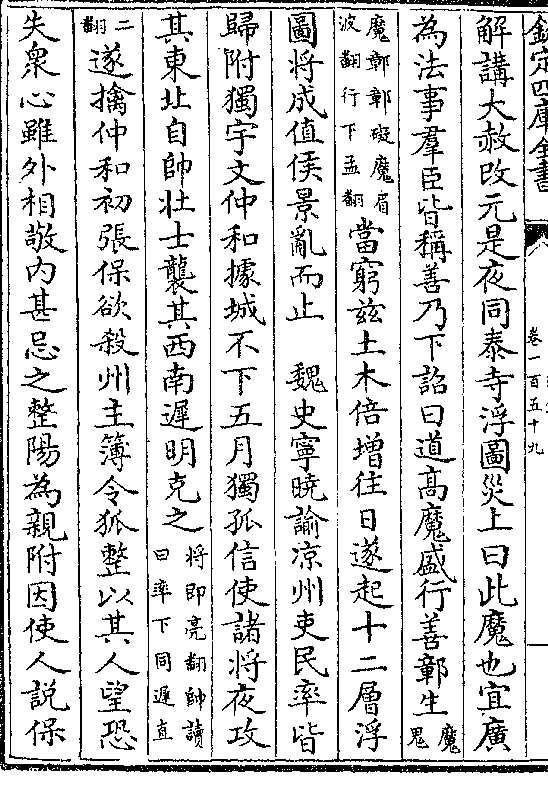 欽定四庫全書
卷一百五十九
解講大赦改元是夜同泰寺浮圖災上曰此魔也宜廣
為法事羣臣皆稱善乃下詔曰道高魔盛行善鄣生魔
眉
魔鄣鄣礙魔眉
波翻行下孟翻當窮兹土木倍增往日遂起十二層浮
圖將成值侯景亂而止　魏史寧曉諭凉州吏民率皆
歸附獨宇文仲和據城不下五月獨孤信使諸將夜攻
其東北自帥壯士襲其西南遲明克之將即亮翻帥讀
曰率下同遲直
二翻遂擒仲和初張保欲殺州主簿令狐整以其人望恐
失衆心雖外相敬内甚忌之整陽為親附因使人説保